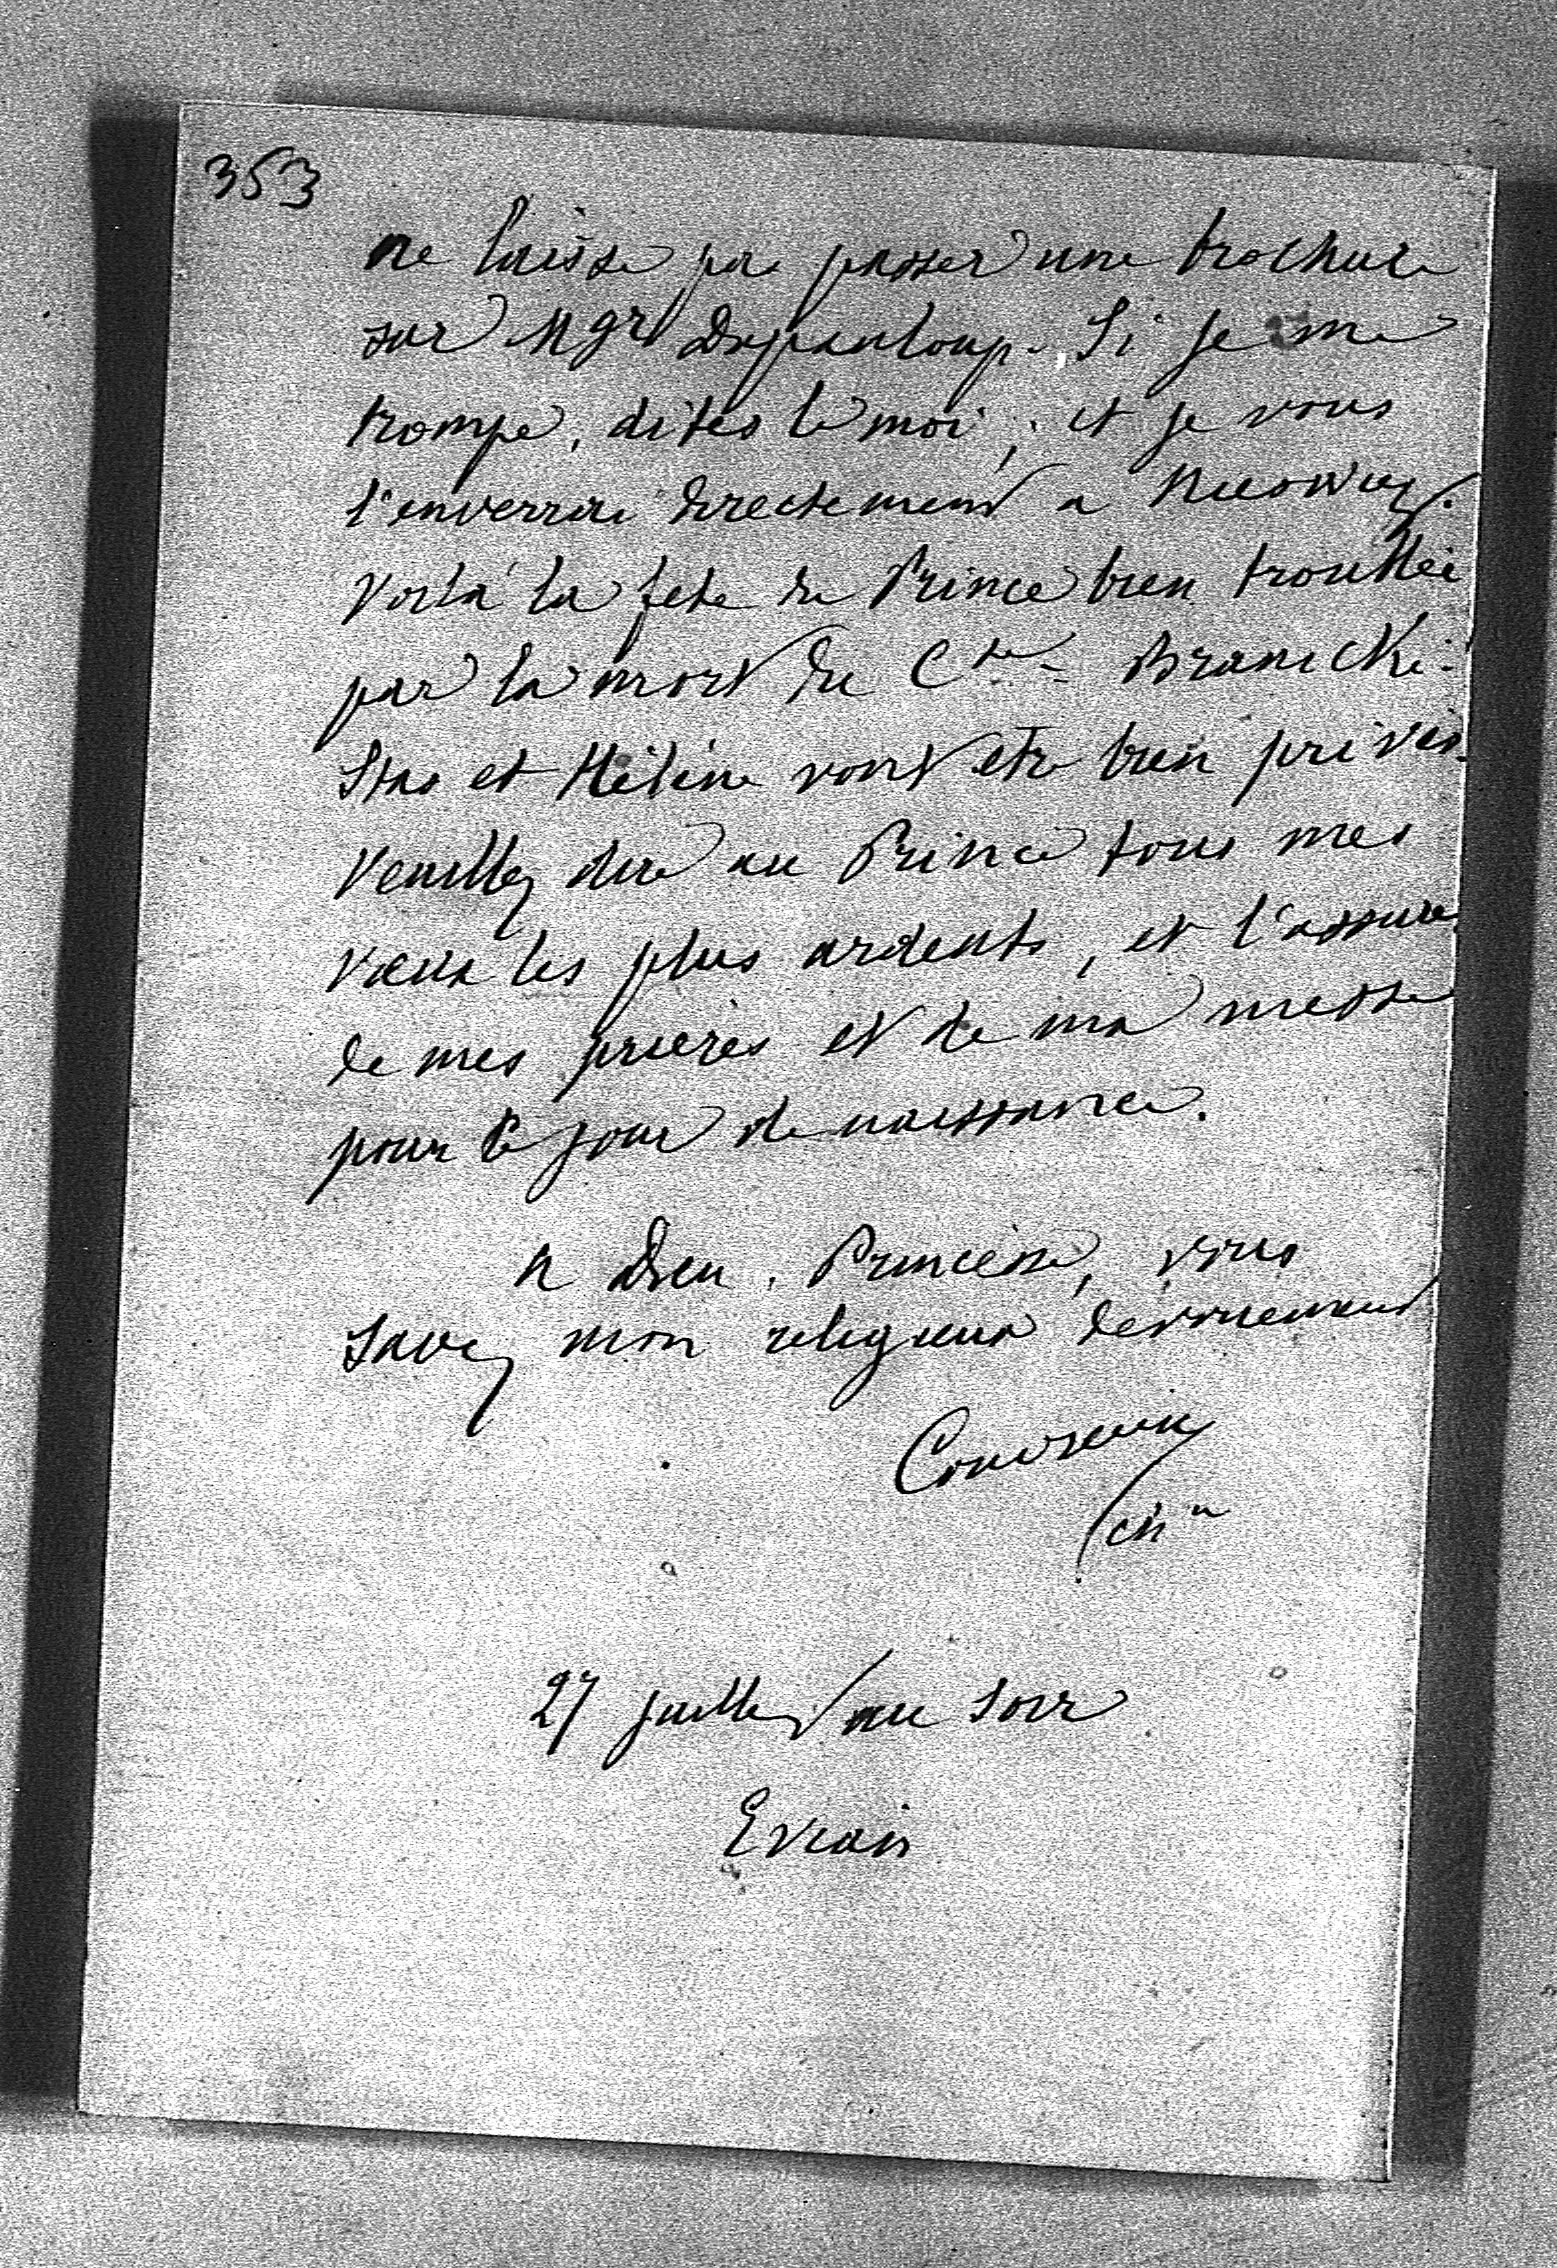 353
ne laisse pas passer une brochure
sur Mgr Dupanloup. Si je me
trompe, dites le moi, et je vous
l'enverrai directement a
Voilà la fete du Prince bien troublée
par la mort du Cte Branicki.
Stas et Hélène vont etre bien privés.
Veuillez dire au Prince tous mes
vœux les plus ardents, et l'assurer
de mes prières et de ma messe
pour le jour de naissance.
A Dieu, Princesse, vous
savez mon religieux dévouement
chne
27 juillet au soir
Evian